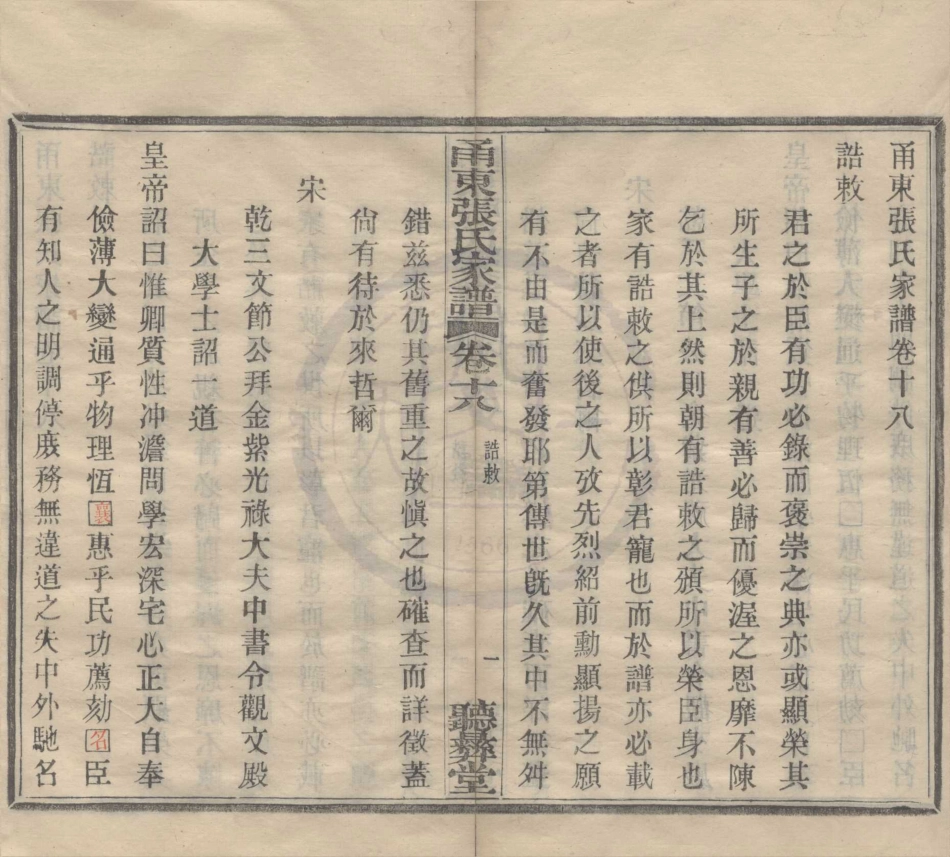 甬東張氏家譜卷十八
誥敕
君之於臣有功必錄而褒崇之典亦或顯榮其
所生子之於親有善必歸而優渥之恩靡不陳
乞於其上然則朝有誥敕之頒所以榮臣身也
家有誥敕之供所以彰君寵也而於譜亦必載
之者所以使後之人攷先烈紹前勳顯揚之願
有不由是而奮發耶第傳世旣久其中不無舛
甬東張氏家譜 卷十八 誥敕 一 聽彝堂
錯茲悉仍其舊重之故愼之也確查而詳徵蓋
尙有待於來哲爾
宋
乾三文節公拜金紫光祿大夫中書令觀文殿
大學士詔 道
皇帝詔曰惟卿質性冲澹問學宏深宅心正大自奉
儉薄大變通乎物理恆襄惠乎民功薦劾名臣
有知人之明調停庶務無違道之失中外馳名